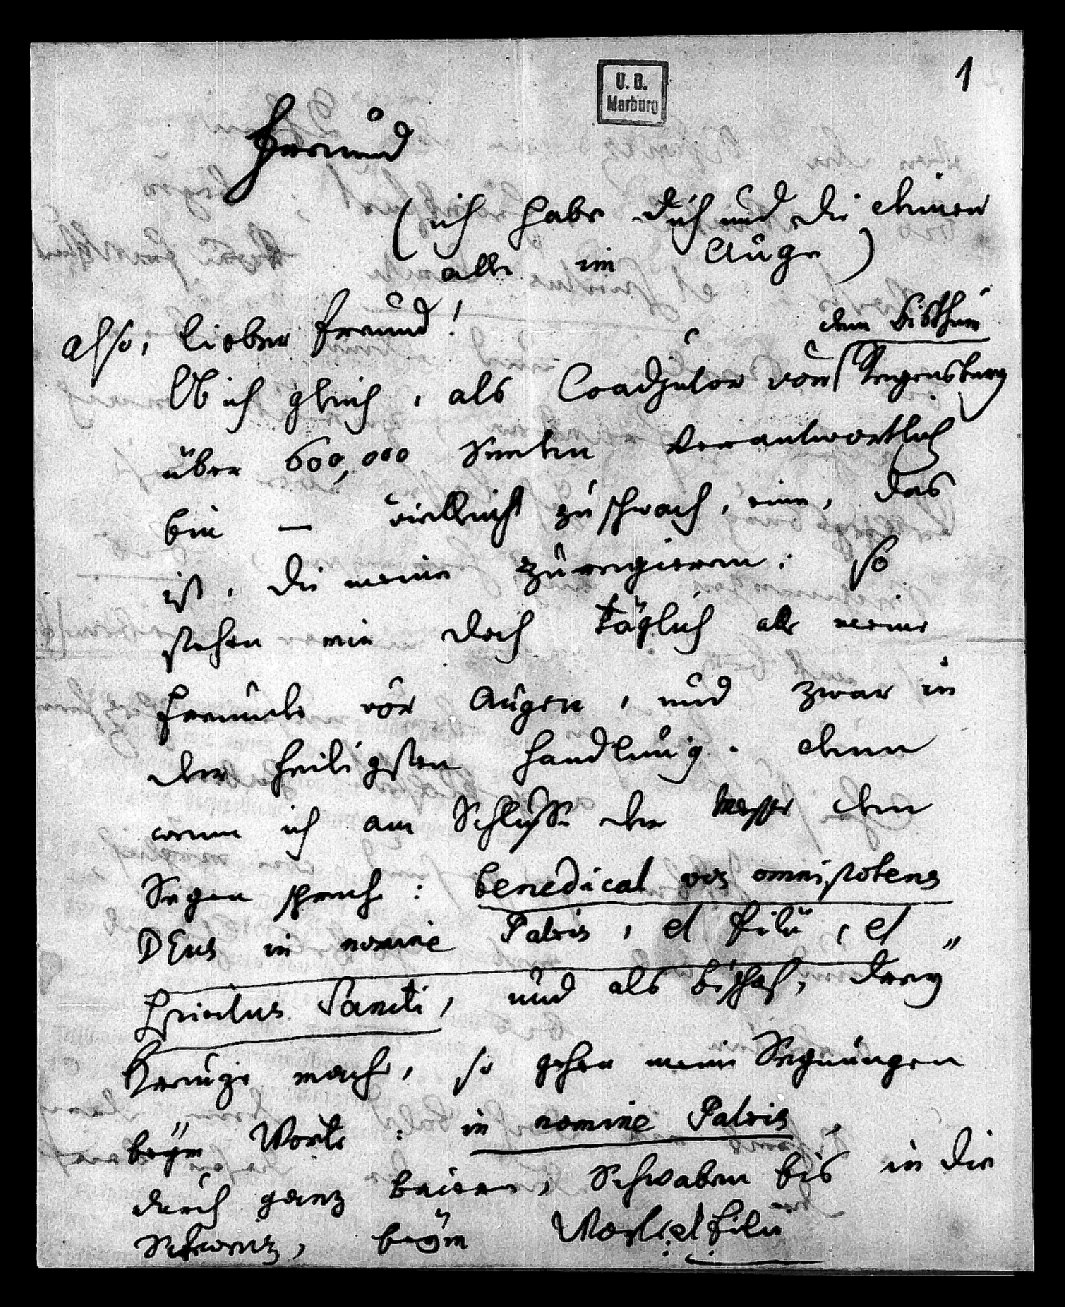 1
U. B.
Marburg
Freund
(ich habe dich und die deinen
alle im Auge)
also, lieber Freund!
dem Bisthum
Ob ich gleich, als Coadjutor von Regensburg
über 600,000 Seelen verantwortlich
bin — vielleicht zu schwach, eine, das
ist, die meine zu regieren: so
stehen mir doch täglich alle meine
Freunde vor Augen, und zwar in
der heiligsten Handlung. denn
wenn ich am Schluße der Messe den
Segen sprech: benedicat vos omnipotens
DEus in nomine Patris, et filii, et
Spiritus Sancti, und als bischof, drey
Kreuze mache, so gehen meine Segnungen
beÿm Worte: in nomine Patris,
durch ganz Baiern, Schwaben bis in die
Schweiz, beÿm Worte: et filii